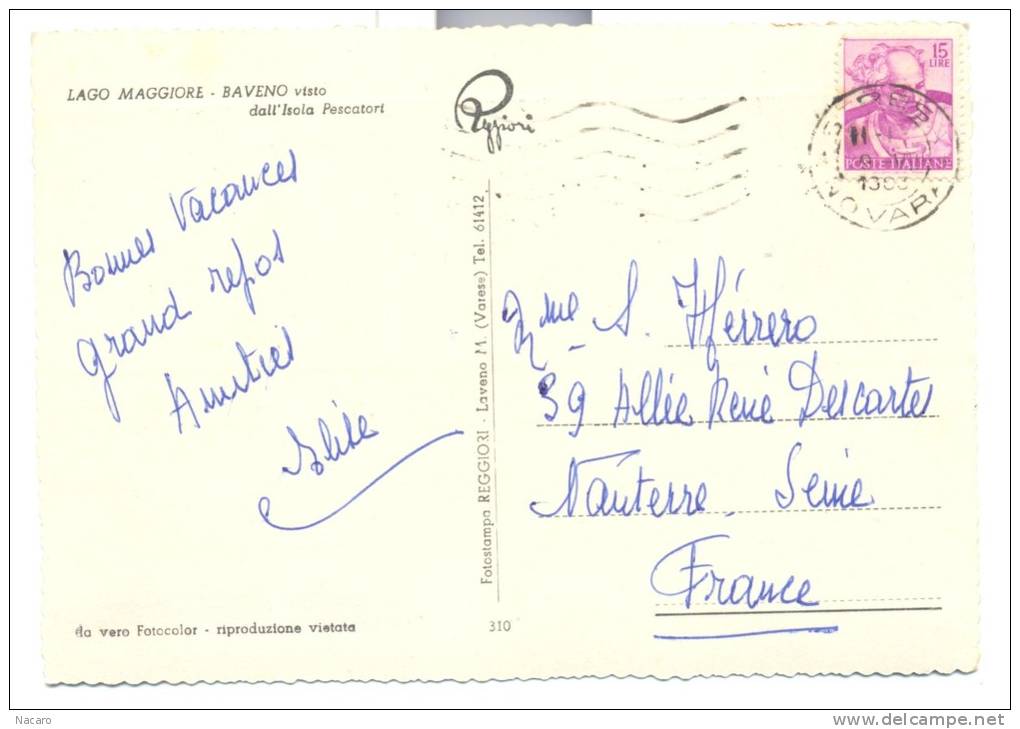 LAGO MAGGIORE - BAVENO visto
dall'Isola Pescatori
Reggiori
15
LIRE
POSTE ITALIANE
NOVARA
Bonnes Vacances
grand repos
Amitiés
Elise
Fotostampa REGGIORI - Laveno M. (Varese) Tel. 61412
Mme S. Hérrero
39 Allée René Descartes
Nanterre. Seine
France
da vero Fotocolor - riproduzione vietata
310
Nacaro
www.delcampe.net